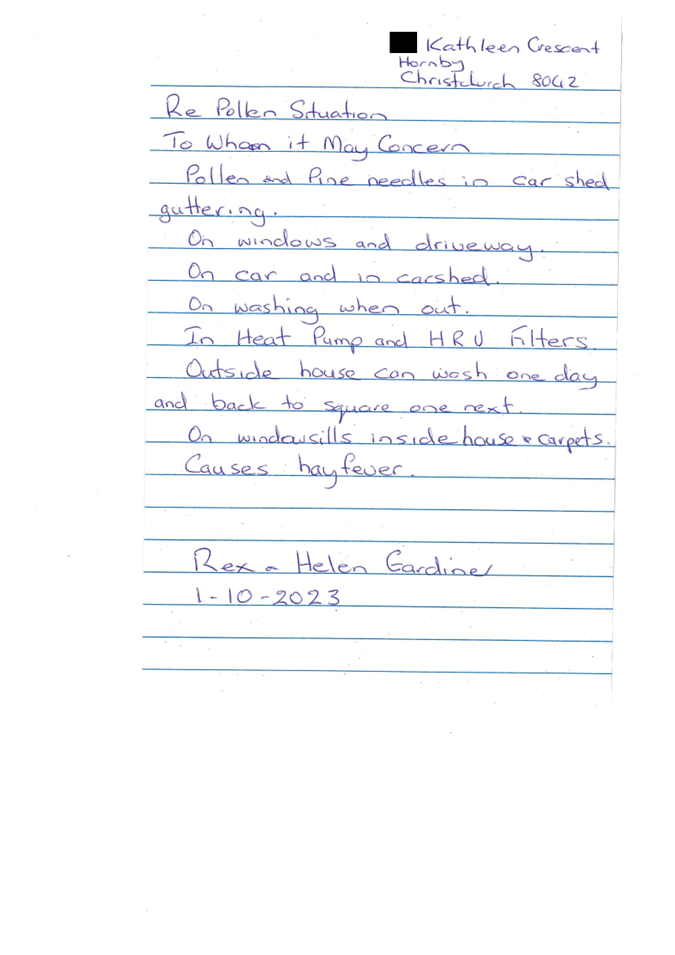 Kathleen Crescent
Hornby
Christchurch 8042
Re Pollen Situation
To Whom it May Concern
Pollen and Pine needles in car shed
guttering.
On windows and driveway.
On car and in carshed.
On washing when out.
In Heat Pump and HRU Filters.
Outside house can wash one day
and back to square one next.
On windowsills inside house & carpets.
Causes hayfever.
Rex & Helen Gardiner
1-10-2023